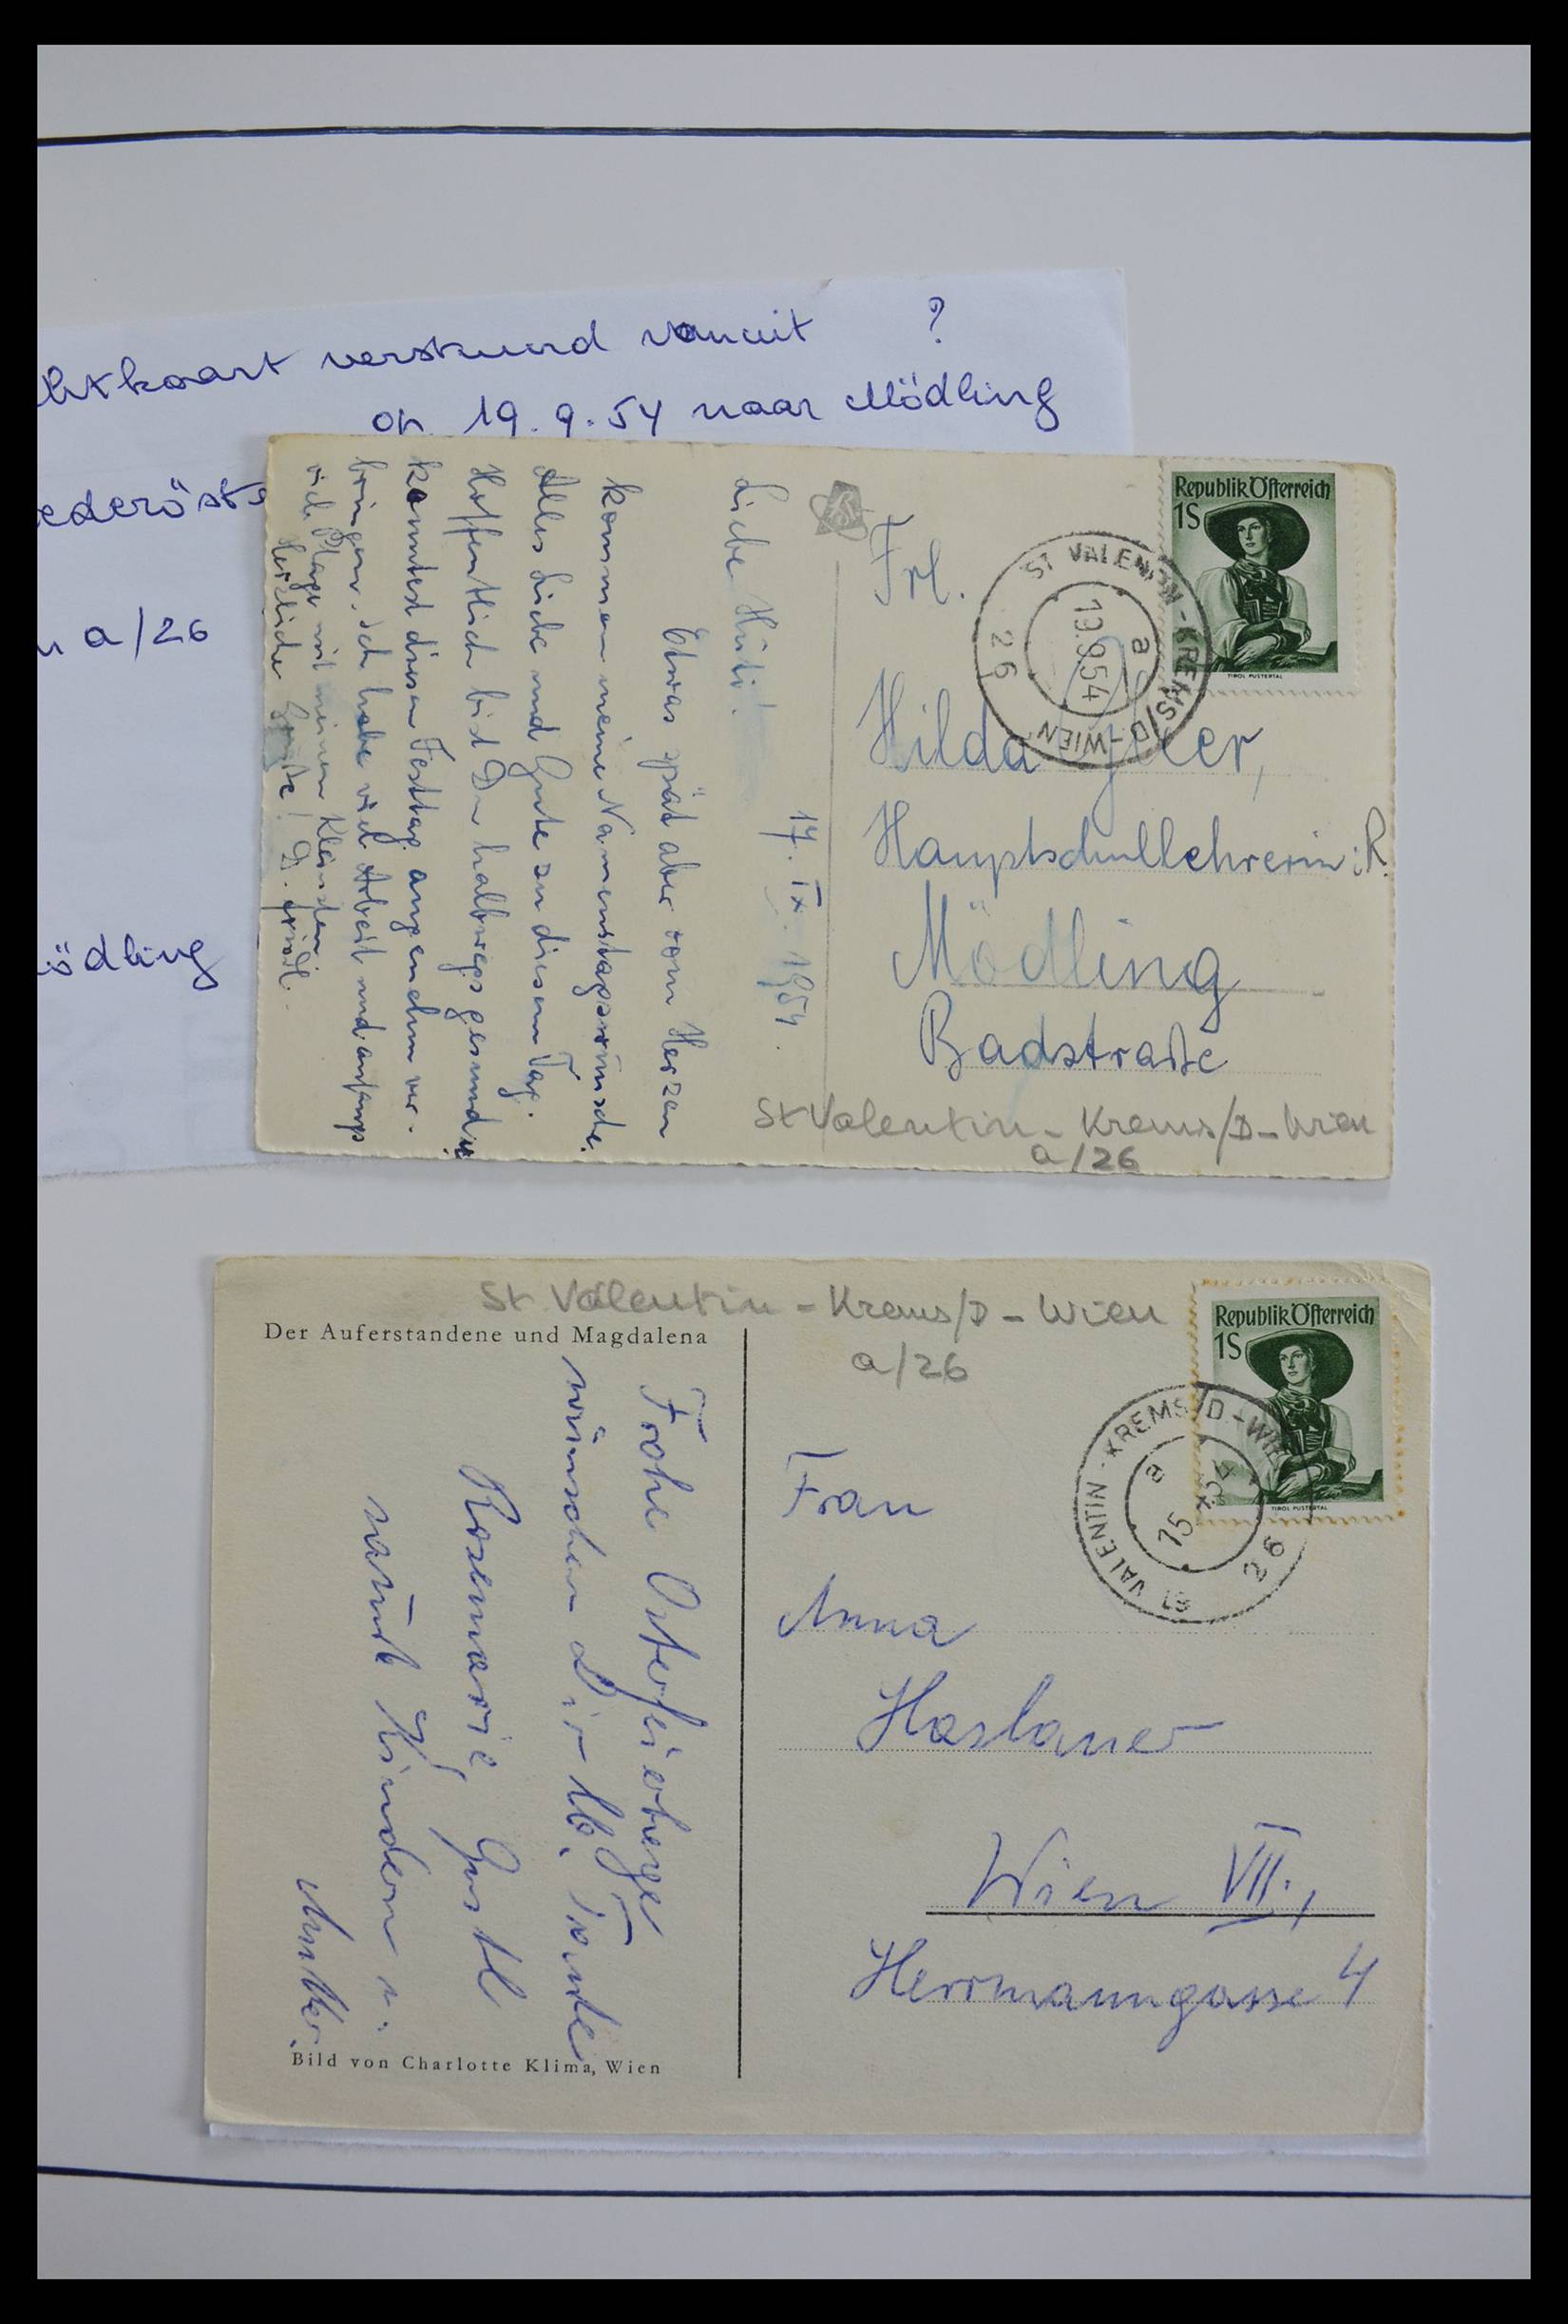 verstuurd vanuit ?
op 19.9.54 naar Mödling
a/26
Mödling
17. IX. 1954.
Liebe Hilde!
Etwas spät aber vom Herzen
kommen meine Namenstagswünsche.
Alles Liebe und Gute zu diesem Tag.
Hoffentlich bist Du halbwegs gesund u.
konntest diesen Festtag angenehm ver-
bringen. Ich habe viel Arbeit und anfangs
viel Plage mit meinen Kleinsten.
Herzliche Grüße! D.
Republik Österreich
1S
TIROL PUSTERTAL
ST VALENTIN - KREMS/D - WIEN
a
19.9.54
26
Frl.
Hilda
Hauptschullehrerin i.R.
Mödling
Badstraße
St Valentin - Krems/D - Wien
a/26
St Valentin - Krems/D - Wien
a/26
Der Auferstandene und Magdalena
Frohe Osterfeiertage
wünschen Dir lb. Tante
Rosemarie, Gustl
samt Kindern u.
Mutter.
Bild von Charlotte Klima, Wien
Republik Österreich
1S
TIROL PUSTERTAL
ST VALENTIN - KREMS/D - WIEN
a
26
Frau
Anna
Haslauer
Wien VII.,
Herrmanngasse 4